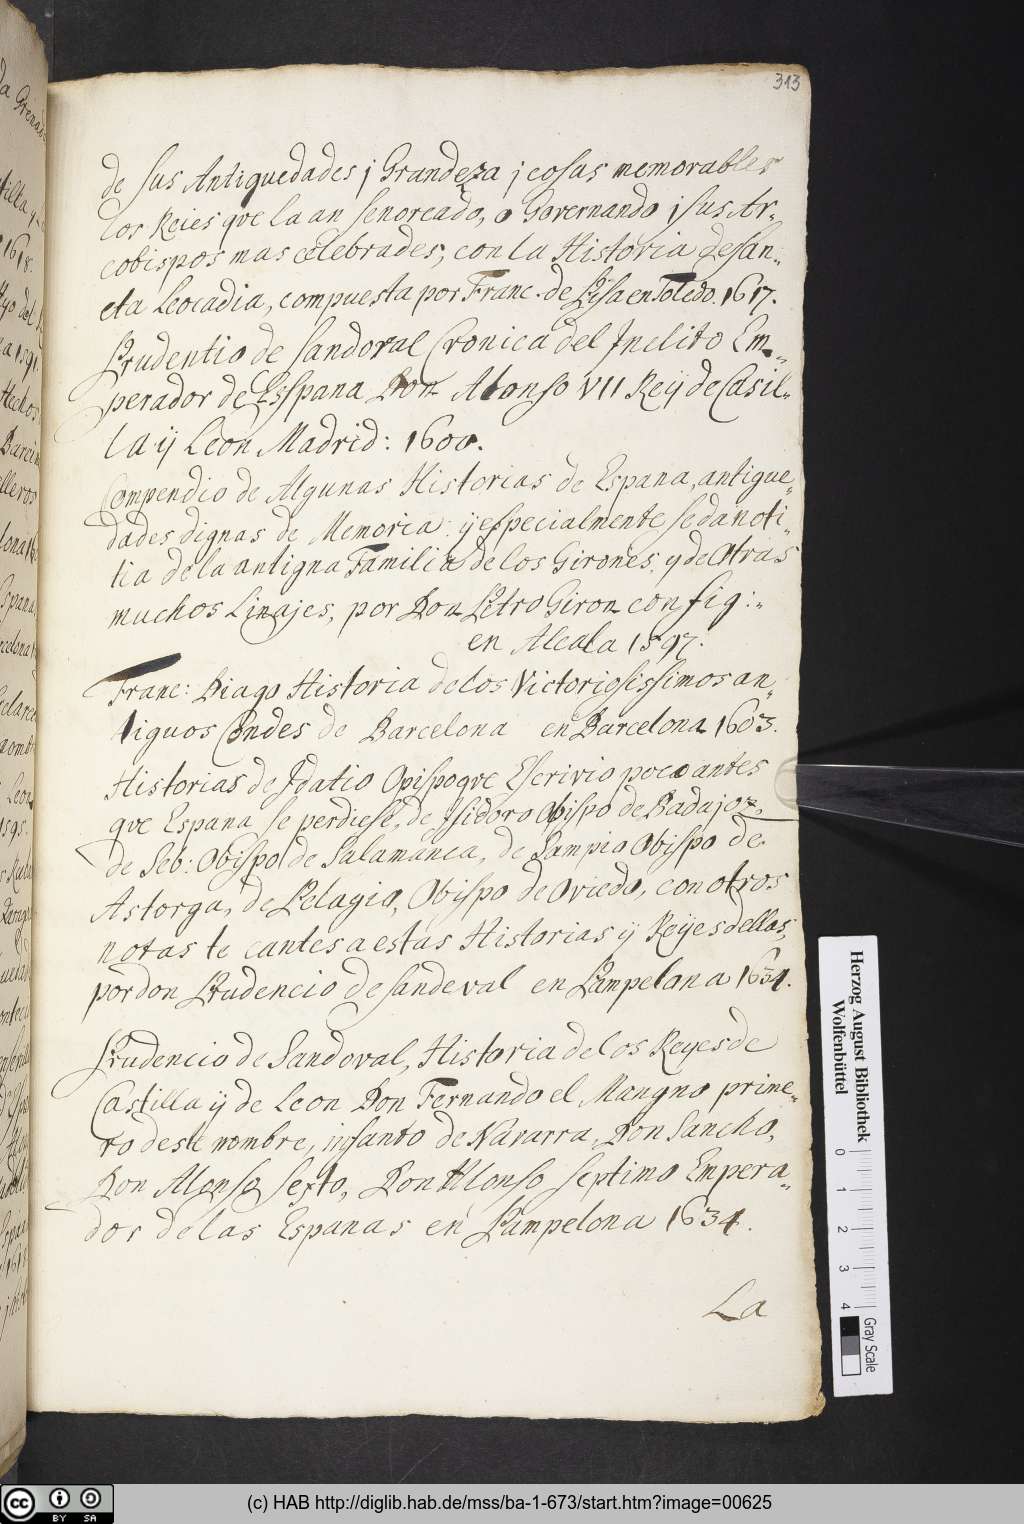 313
de sus Antiquedades j Grandeza j cosas memorables
los Reies qve la an senoreado, o Governando j sus Ar„
cobispos mas celebrades, con la Historia de San„
cta Leocadia, compuesta por Franc. de Pisa en Toledo. 1617.
Prudentio de Sandoval Cronica del Inclito Em„
perador de Esspana Don Alonso VII Reÿ de Casil„
la ÿ Leon Madrid: 1600.
Compendio de Algunas Historias de Espana, antigue„
dades dignas de Memoria ÿ especialmente se da noti„
tia de la antigna Familia de los Girones, y de Otras
muchos Linajes, por Don Petro Giron con fig:„
en Alcala 1597.
Franc: Diago Historia de los Victoriosissimos an„
tiguos Condes de Barcelona en Barcelona 1603.
Historias de Idatio Opispo qve Escrivio poco antes
qve Espana se perdiese, de Isidoro Obispo de Badajoz,
de Seb: Obispo de Salamanca, de Sampio Obispo de
Astorga, de Pelagio, Obispo de Oviedo, con otros
notas te cantes a estas Historias ÿ Reÿes dellos,
por don Prudencio de Sandeval en Pampelona 1634.
Prudencio de Sandoval, Historia de los Reyes de
Castilla ÿ de Leon Don Fernando el Mangno prime„
ro deste nombre, infanto de Navarra, Don Sancho,
Don Alonso Sexto, Don Alonso Septimo Empera„
dor de las Espanas en Pampelona 1634.
La
Herzog August Bibliothek
Wolfenbüttel
0 1 2 3 4
Gray Scale
cc BY SA
(c) HAB http://diglib.hab.de/mss/ba-1-673/start.htm?image=00625